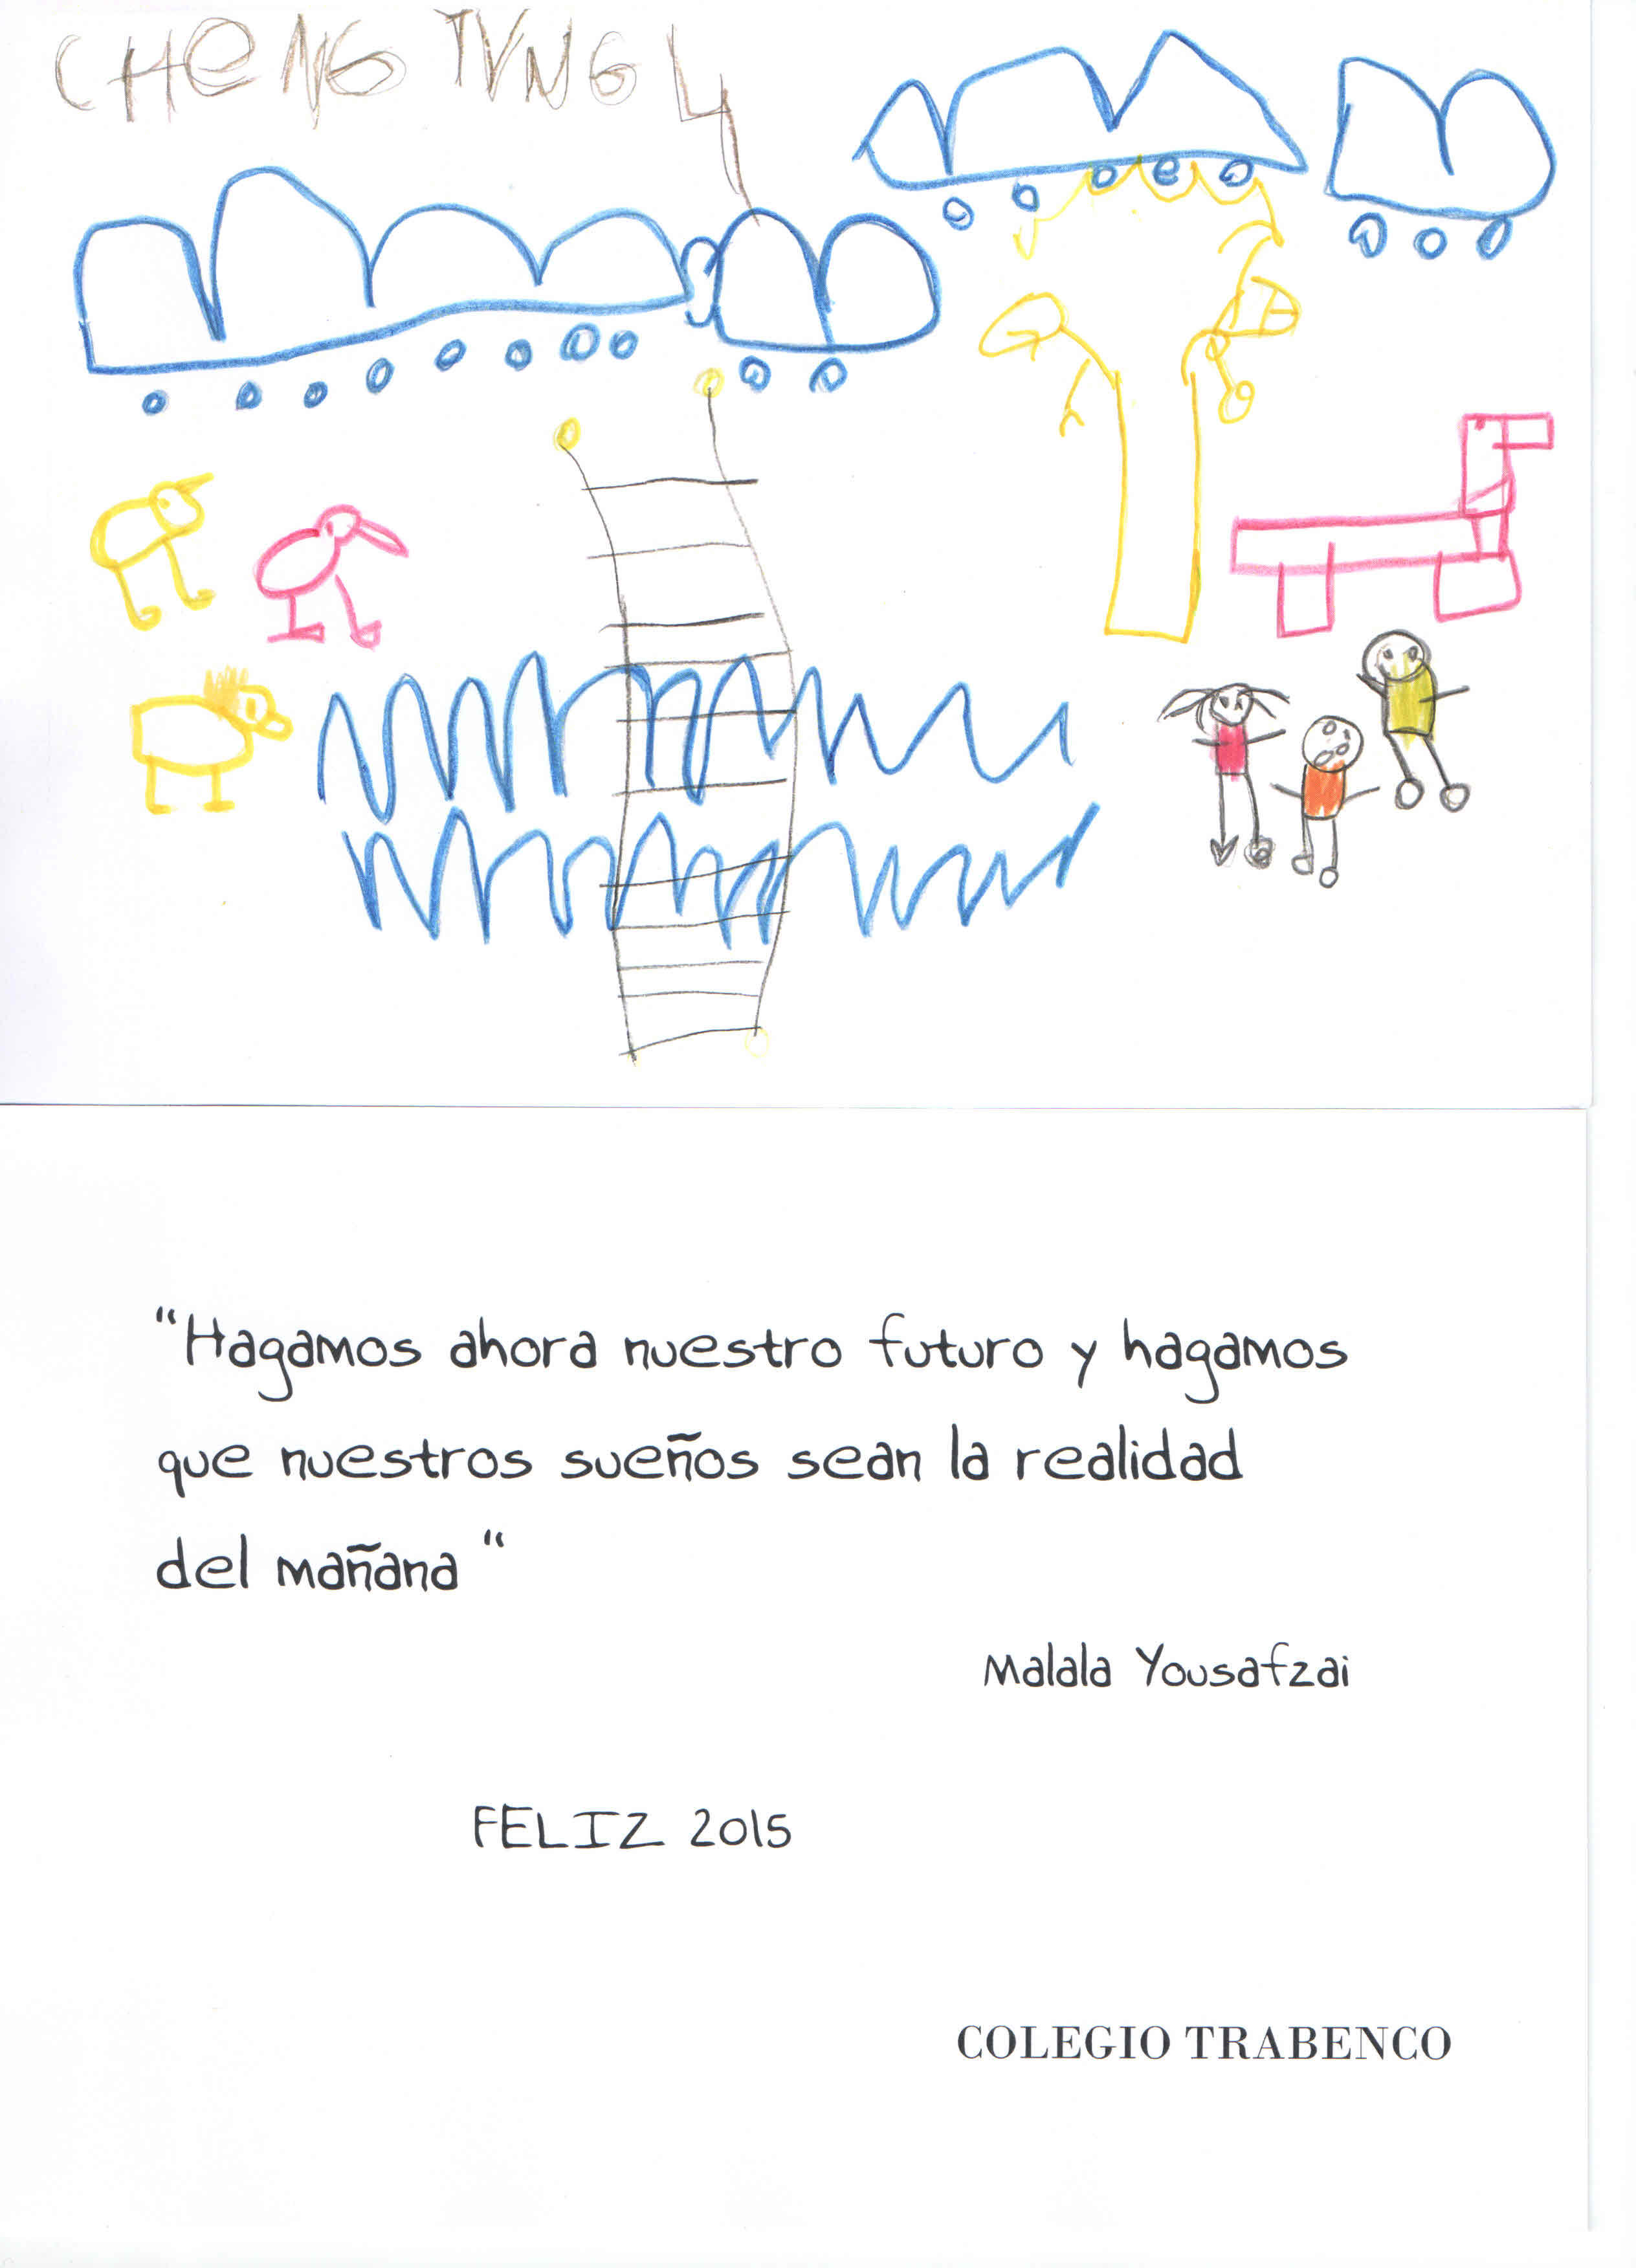 CHENG TVNG 4
“Hagamos ahora nuestro futuro y hagamos
que nuestros sueños sean la realidad
del mañana “
Malala Yousafzai
FELIZ 2015
COLEGIO TRABENCO